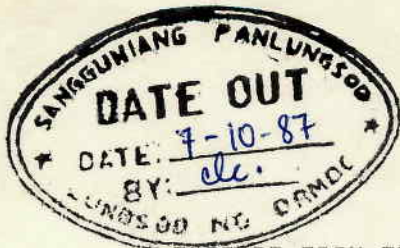 SANGGUNIANG PANLUNGSOD
DATE OUT
DATE: 7-10-87
BY: clc.
LUNGSOD NG ORMOC